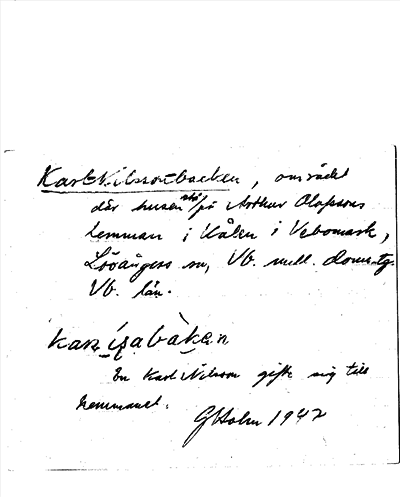 Karl-Nilssonbacken, området
där husen stå på Arthur Olofssons
hemman i Kålen i Vebomark,
Lövångers sn, Vb. mell. doms.tg.
Vb. län.
kaɳísabàken
En Karl Nilsson gifte sig till
hemmanet.
GHolm 1942